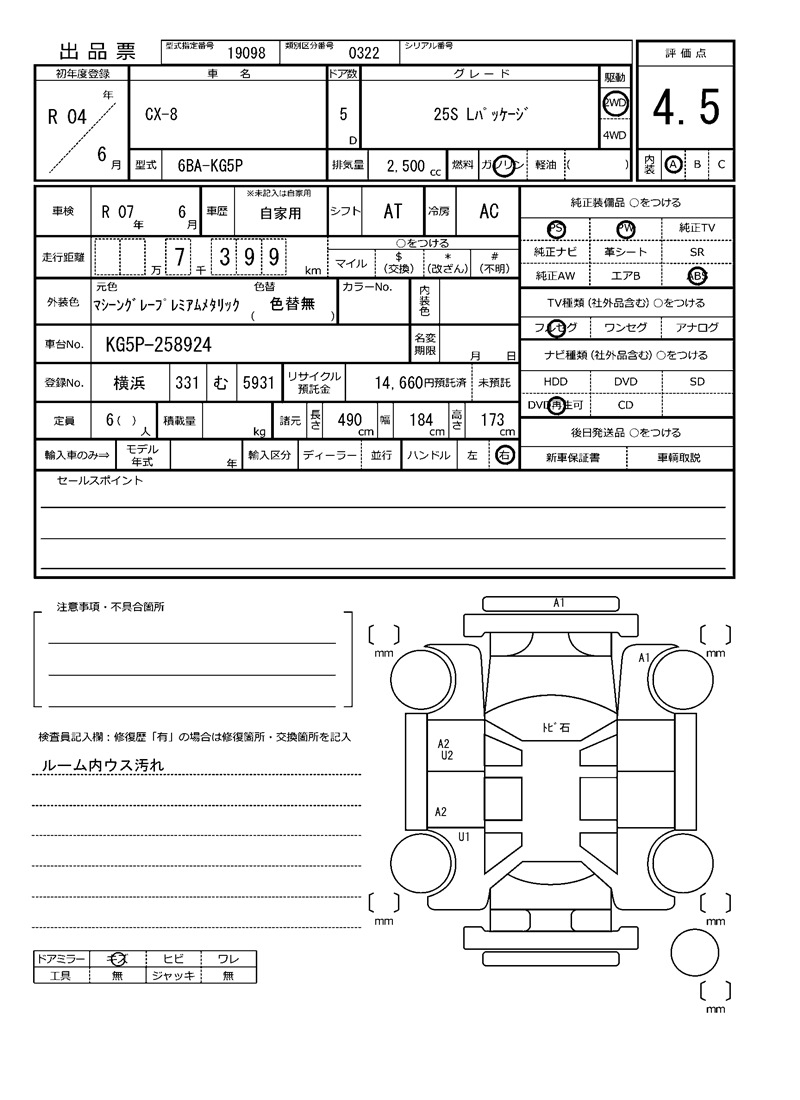 出品票 型式指定番号 19098 類別区分番号 0322 シリアル番号
評価点
初年度登録 車名 ドア数 グレード 駆動
R 04 年 6 月 CX-8 5 D 25S Lパッケージ 2WD 4WD
4.5
型式 6BA-KG5P 排気量 2,500 cc 燃料 ガソリン 軽油 ( )
内装 A B C
車検 R 07 年 6 月 車歴 ※未記入は自家用 自家用 シフト AT 冷房 AC
走行距離 万 7 千 3 9 9 km ○をつける マイル $ (交換) * (改ざん) # (不明)
外装色 元色 マシーングレープレミアムメタリック 色替 色替無 ( ) カラーNo. 内装色
車台No. KG5P-258924 名変期限 月 日
登録No. 横浜 331 む 5931 リサイクル預託金 14,660円預託済 未預託
定員 6 ( ) 人 積載量 kg 諸元 長さ 490 cm 幅 184 cm 高さ 173 cm
輸入車のみ⇒ モデル年式 年 輸入区分 ディーラー 並行 ハンドル 左 右
純正装備品 ○をつける
PS PW 純正TV
純正ナビ 革シート SR
純正AW エアB ABS
TV種類 (社外品含む) ○をつける
フルセグ ワンセグ アナログ
ナビ種類 (社外品含む) ○をつける
HDD DVD SD
DVD再生可 CD
後日発送品 ○をつける
新車保証書 車輌取説
セールスポイント
注意事項・不具合箇所
検査員記入欄：修復歴「有」の場合は修復箇所・交換箇所を記入
ルーム内ウス汚れ
ドアミラー キズ ヒビ ワレ
工具 無 ジャッキ 無
A1
mm
mm
A1
トビ石
A2
U2
A2
U1
mm
mm
mm